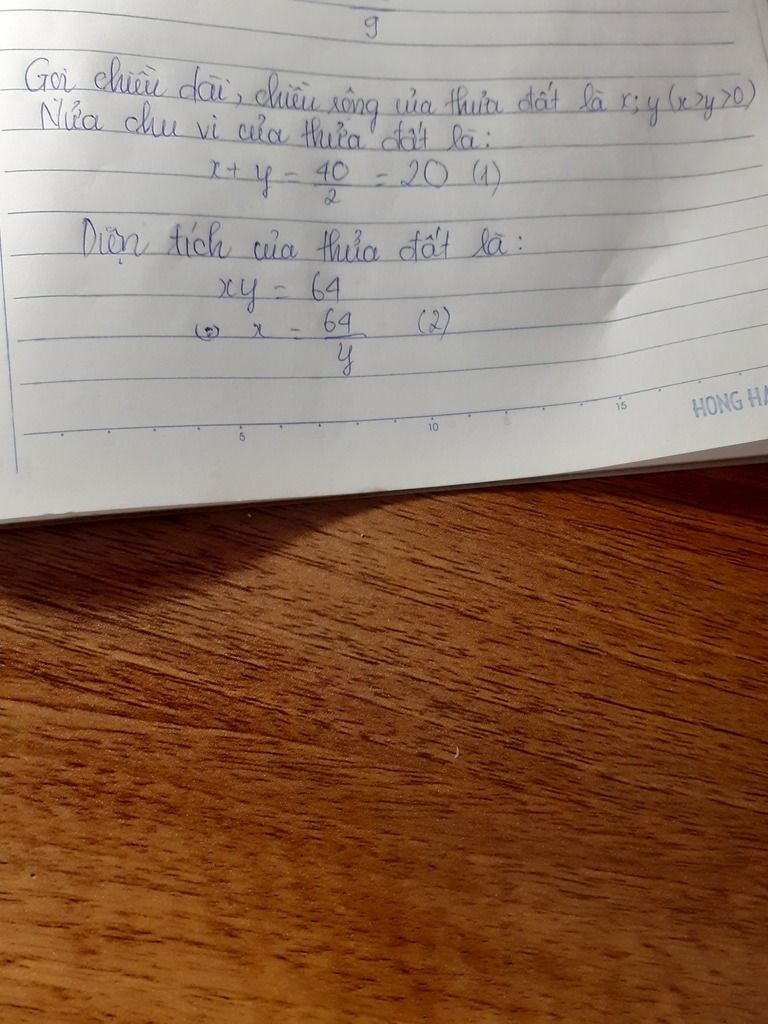 9
Gọi chiều dài, chiều rộng của thửa đất là x; y (x>y>0)
Nửa chu vi của thửa đất là:
x + y = 40/2 = 20 (1)
Diện tích của thửa đất là:
xy = 64
(=) x = 64/y (2)
5 10 15
HONG HA